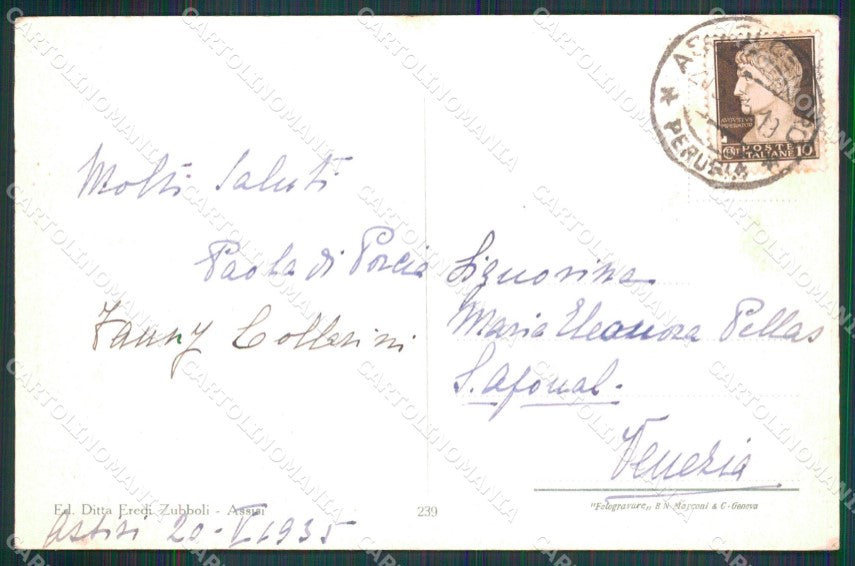 Molti Saluti
Paola di Porcia
Fanny Collerini
Signorina
Maria Eleonora Pellas
S.
Venezia
ASSISI
PERUGIA
POSTE
ITALIANE 10
Ed. Ditta Eredi Zubboli - Assisi
239
"Fologravure,, B N Marconi & C - Genova
Assisi 20-V-1935
CARTOLINOMANIA